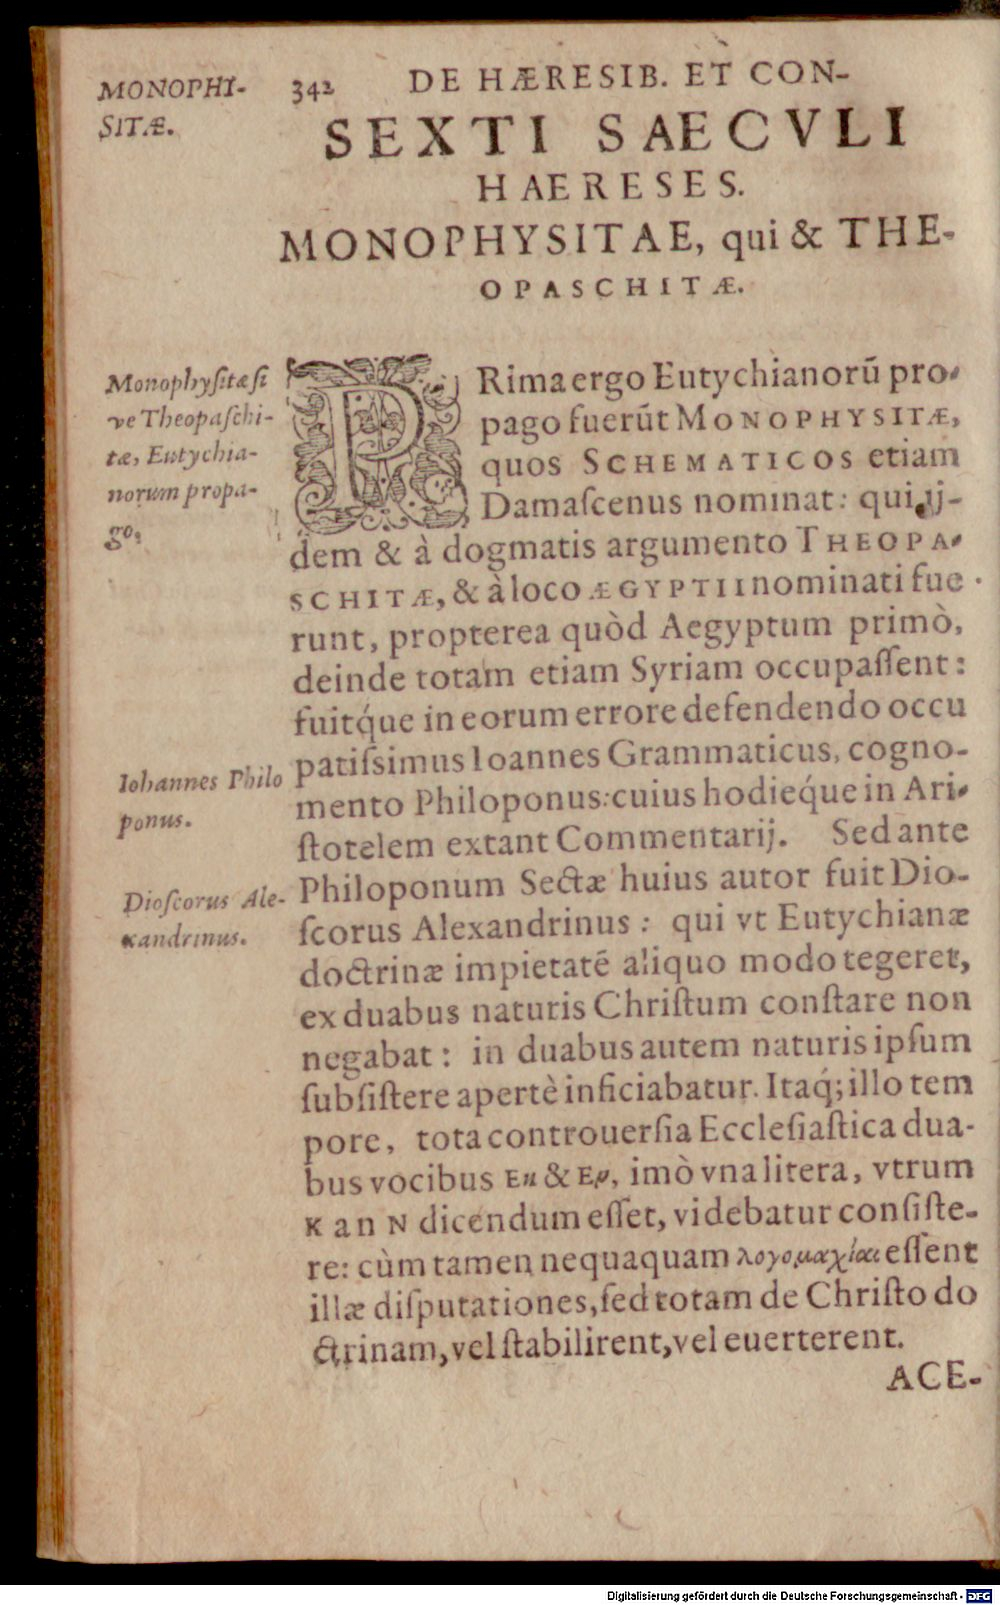 MONOPHI-
SITÆ.
342 DE HÆRESIB. ET CON-
SEXTI SAECVLI
HAERESES.
MONOPHYSITAE, qui & THE-
OPASCHITÆ.
Monophyſitæ ſi
ve Theopaſchi-
tæ, Eutychia-
norum propa-
go.
PRima ergo Eutychianorū pro-
pago fuerūt MONOPHYSITÆ,
quos SCHEMATICOS etiam
Damaſcenus nominat: qui ij-
dem & à dogmatis argumento THEOPA-
SCHITÆ, & à loco ÆGYPTII nominati fue
runt, propterea quòd Aegyptum primò,
deinde totam etiam Syriam occupaſſent:
fuitq́ue in eorum errore defendendo occu
patiſsimus Ioannes Grammaticus, cogno-
mento Philoponus: cuius hodieq́ue in Ari-
ſtotelem extant Commentarij. Sed ante
Philoponum Sectæ huius autor fuit Dio-
ſcorus Alexandrinus: qui vt Eutychianæ
doctrinæ impietatē aliquo modo tegeret,
ex duabus naturis Chriſtum conſtare non
negabat: in duabus autem naturis ipſum
ſubſiſtere apertè inficiabatur. Itaq́; illo tem
pore, tota controuerſia Eccleſiaſtica dua-
bus vocibus & imò vna litera, vtrum
K an N dicendum eſſet, videbatur conſiſte-
re: cùm tamen nequaquam λογομαχίαι eſſent
illæ diſputationes, ſed totam de Chriſto do
ctrinam, vel ſtabilirent, vel euerterent.
ACE-
Iohannes Philo
ponus.
Dioſcorus Ale-
xandrinus.
Digitalisierung gefördert durch die Deutsche Forschungsgemeinschaft - DFG